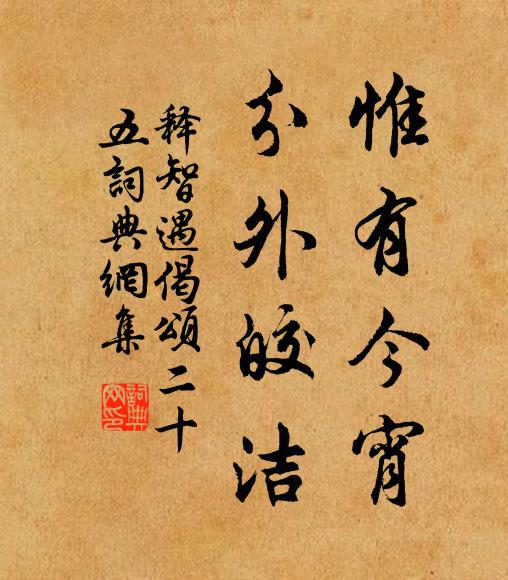 惟有今宵
分外皎洁
释智遇偈頌二十
五詞典網集